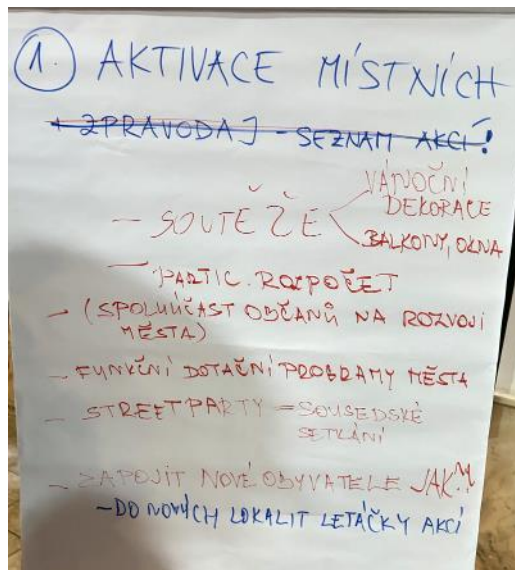 1. AKTIVACE MÍSTNÍCH
+ ZPRAVODAJ - SEZNAM AKCÍ!
VÁNOČNÍ
DEKORACE
- SOUTĚŽE
BALKONY, OKNA
- PARTIC. ROZPOČET
- (SPOLUÚČAST OBČANŮ NA ROZVOJI
MĚSTA)
- FUNKČNÍ DOTAČNÍ PROGRAMY MĚSTA
- STREETPARTY = SOUSEDSKÉ
SETKÁNÍ
- ZAPOJIT NOVÉ OBYVATELE JAK?
- DO NOVÝCH LOKALIT LETÁČKY AKCÍ